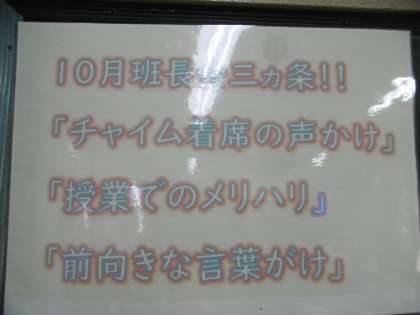 10月班長 三ヵ条!!
「チャイム着席の声かけ」
「授業でのメリハリ」
「前向きな言葉がけ」